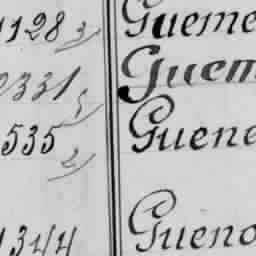 1128 3 Gueme
2331 5 Guem
535 2 Guene
1344 Gueno